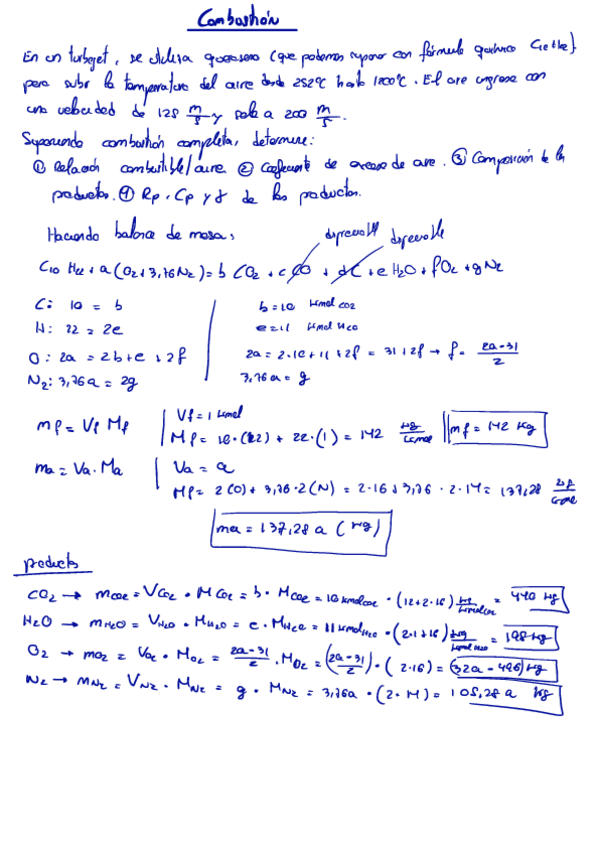 Combustión
En un turbojet, se utiliza queroseno (que podemos suponer con fórmula química C10H22)
para subir la temperatura del aire desde 252ºC hasta 1200ºC. El aire ingresa con
una velocidad de 128 m/s y sale a 200 m/s.
Suponiendo combustión completa, determine:
① Relación combustible/aire. ② Coeficiente de exceso de aire. ③ Composición de los
productos. ④ Rp, Cp y γ de los productos.
Haciendo balance de masa, despreciable despreciable
C10 H22 + a (O2 + 3,76 N2) = b CO2 + c CO + dC + e H2O + f O2 + g N2
C: 10 = b b = 10 kmol CO2
H: 22 = 2e e = 11 kmol H2O
O: 2a = 2b + e + 2f 2a = 2·10 + 11 + 2f = 31 + 2f → f = (2a-31)/2
N2: 3,76a = 2g 3,76a = g
mf = Vf Mf Vf = 1 kmol
Mf = 10·(12) + 22·(1) = 142 kg/kmol mf = 142 kg
ma = Va · Ma Va = a
Mf = 2(O) + 3,76·2(N) = 2·16 + 3,76·2·14 = 137,28 kg/kmol
ma = 137,28 a (kg)
products
CO2 → mCO2 = VCO2 · MCO2 = b · MCO2 = 10 kmolCO2 · (12+2·16) kg/kmolCO2 = 440 kg
H2O → mH2O = VH2O · MH2O = e · MH2O = 11 kmolH2O · (2·1+16) kg/kmolH2O = 198 kg
O2 → mO2 = VO2 · MO2 = (2a-31)/2 · MO2 = ((2a-31)/2) · (2·16) = (32a - 496) kg
N2 → mN2 = VN2 · MN2 = g · MN2 = 3,76a · (2·14) = 105,28 a kg